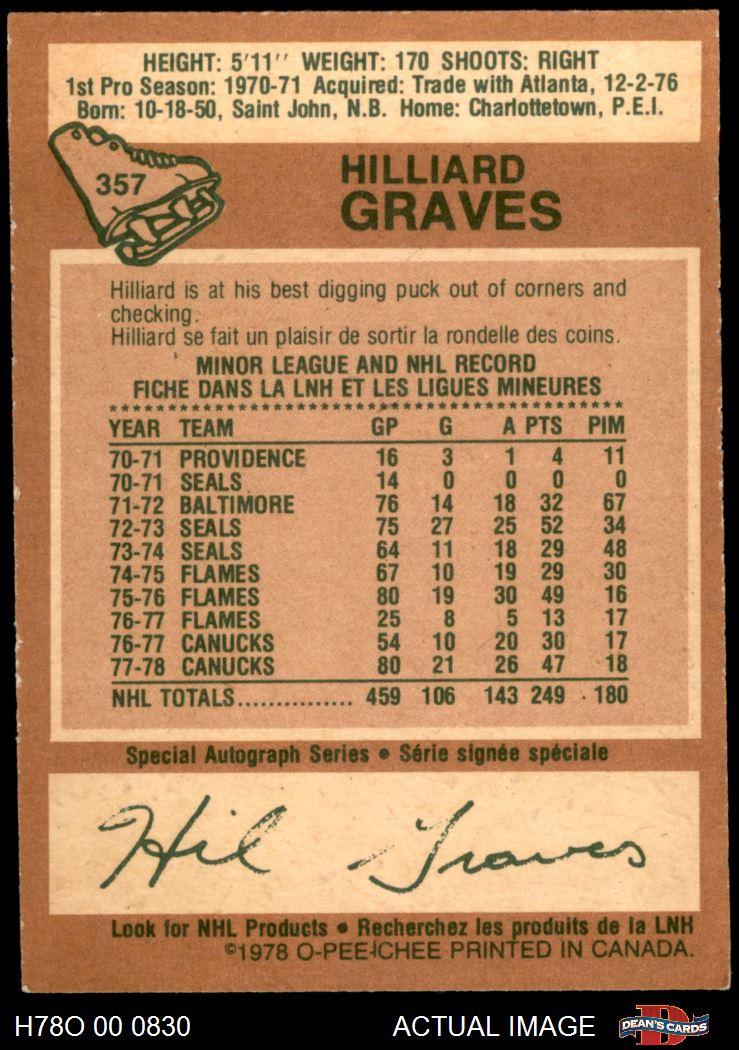 HEIGHT: 5'11'' WEIGHT: 170 SHOOTS: RIGHT
1st Pro Season: 1970-71 Acquired: Trade with Atlanta, 12-2-76
Born: 10-18-50, Saint John, N.B. Home: Charlottetown, P.E.I.
357
HILLIARD
GRAVES
Hilliard is at his best digging puck out of corners and
checking.
Hilliard se fait un plaisir de sortir la rondelle des coins.
MINOR LEAGUE AND NHL RECORD
FICHE DANS LA LNH ET LES LIGUES MINEURES
YEAR TEAM GP G A PTS PIM
70-71 PROVIDENCE 16 3 1 4 11
70-71 SEALS 14 0 0 0 0
71-72 BALTIMORE 76 14 18 32 67
72-73 SEALS 75 27 25 52 34
73-74 SEALS 64 11 18 29 48
74-75 FLAMES 67 10 19 29 30
75-76 FLAMES 80 19 30 49 16
76-77 FLAMES 25 8 5 13 17
76-77 CANUCKS 54 10 20 30 17
77-78 CANUCKS 80 21 26 47 18
NHL TOTALS............... 459 106 143 249 180
Special Autograph Series • Série signée spéciale
Hil Graves
Look for NHL Products • Recherchez les produits de la LNH
©1978 O-PEE-CHEE PRINTED IN CANADA.
H78O 00 0830 ACTUAL IMAGE D DEAN'S CARDS